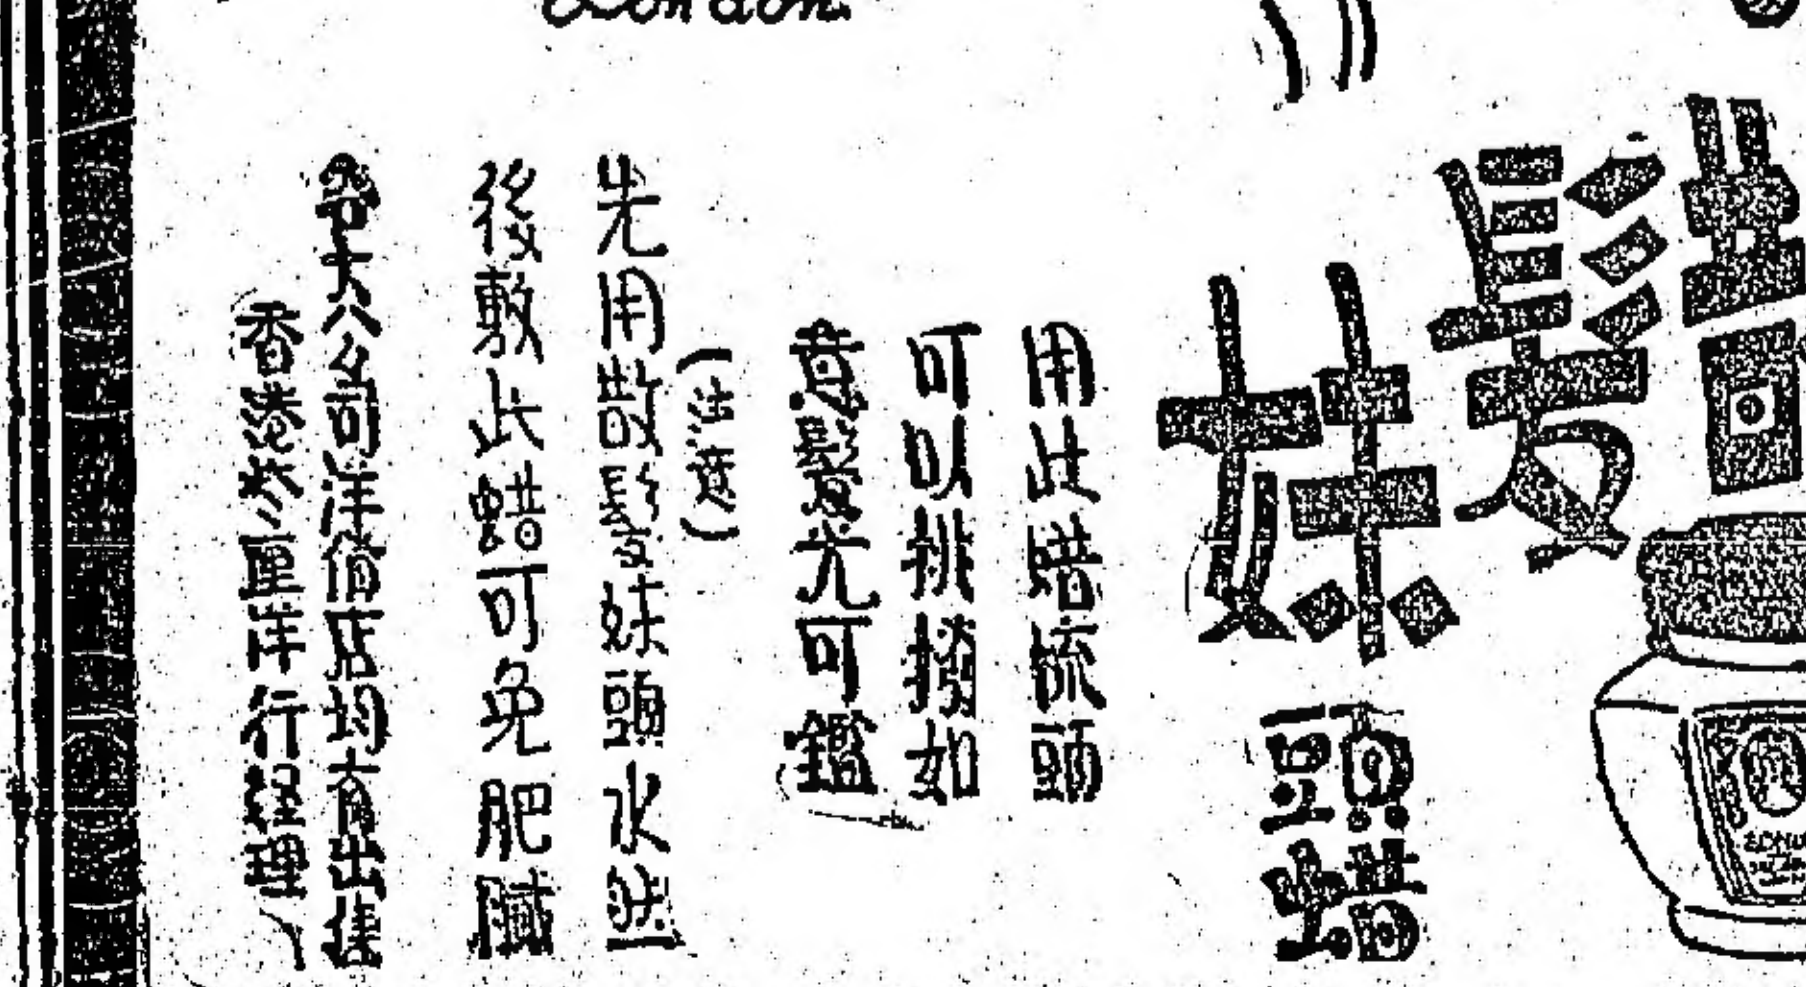 London.
髮妹
頭蜡
用此蜡梳頭
可以排撥如
意髮光可鑑
(注意)
先用散髮妹頭水然
後敷此蜡可免肥膩
各大公司洋貨店均有出售
香港 洋行經理